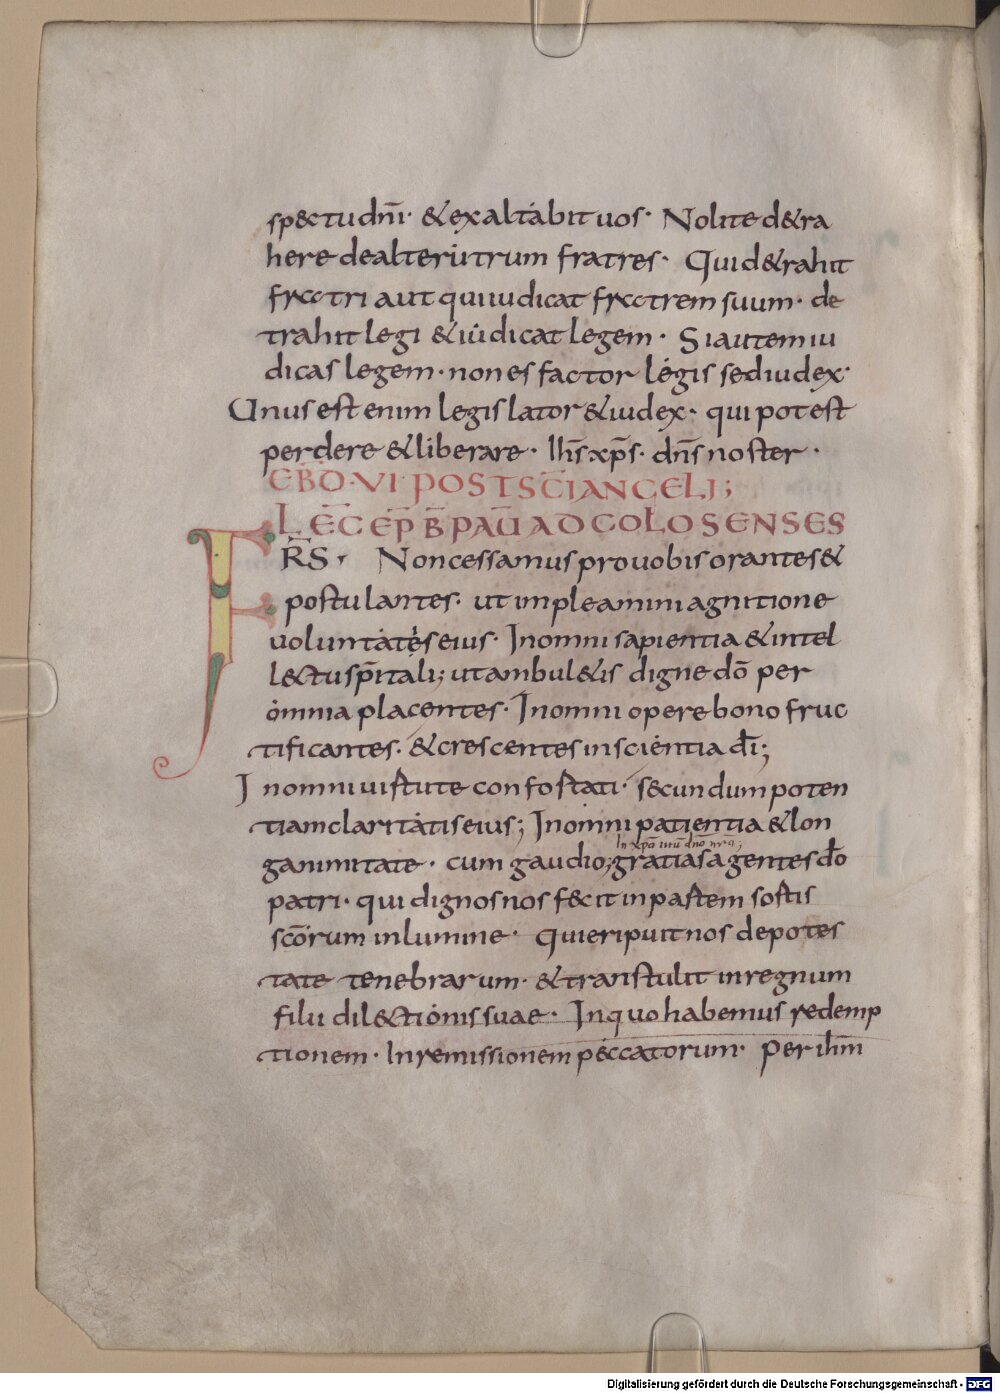 sp&tu dn̄i· & exaltabit uos· Nolite d&ra
here de alterutrum fratres· Qui d&rahit
fratri aut qui iudicat fratrem suum· de
trahit legi & iudicat legem· Si autem iu
dicas legem· non es factor legis sed iudex·
Unus est enim legis lator & iudex· qui potest
perdere & liberare· Ihs̄ xp̄s· dn̄s noster·
EBD̄·VI·POST SC̄I ANGELI;
LEC̄ EP̄ B̄ PAŪ AD COLOSENSES
FR̄S· Non cessamus pro uobis orantes &
postulantes· ut impleamini agnitione
uoluntates eius· In omni sapientia & intel
l&tu sp̄itali; ut ambul&is digne dō per
omnia placentes· In omni opere bono fruc
tificantes· & crescentes in scientia dī;
In omni uirtute confortati· secundum poten
tiam claritatis eius; In omni patientia & lon
In xp̄o ihū dn̄o nr̄o;
ganimitate· cum gaudio; gratias agentes dō
patri· qui dignos nos fecit in partem sortis
scōrum in lumine· Qui eripuit nos de potes
tate tenebrarum· & transtulit in regnum
filii dil&tionis suae· In quo habemus redemp
tionem· In remissionem peccatorum· Per ihm̄
Digitalisierung gefördert durch die Deutsche Forschungsgemeinschaft - DFG